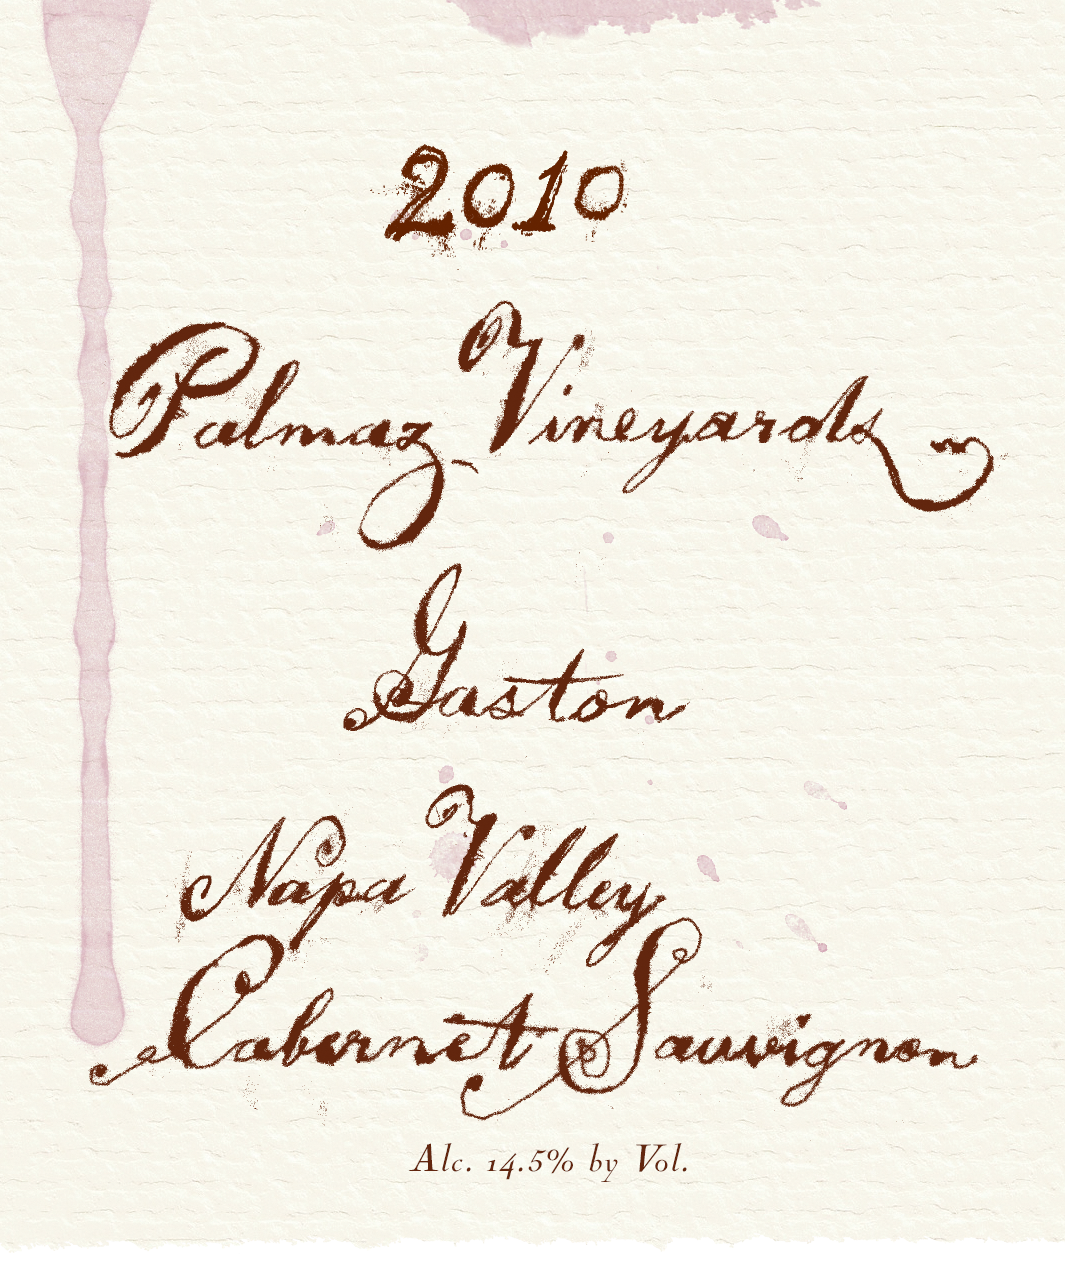 2010
Palmaz Vineyards
Gaston
Napa Valley
Cabernet Sauvignon
Alc. 14.5% by Vol.